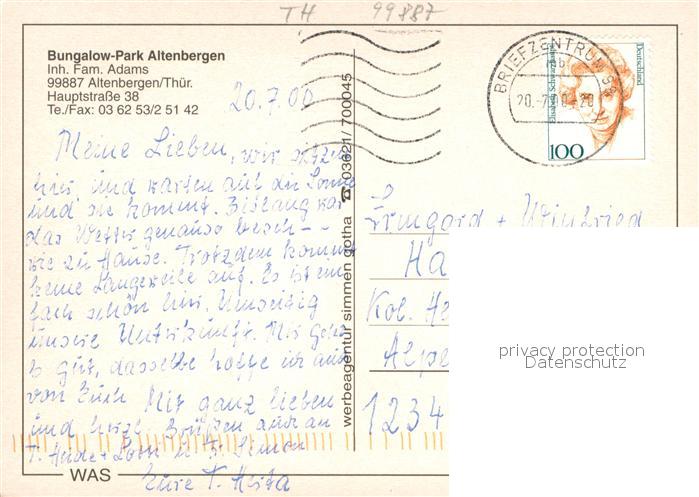 TH 99887
Bungalow-Park Altenbergen
Inh. Fam. Adams
99887 Altenbergen/Thür.
Hauptstraße 38
Te./Fax: 03 62 53/2 51 42
20.7.00
Meine Lieben, wir sitzen
hier und warten auf die Sonne
und sie kommt. Bislang war
das Wetter genauso besch--
wie zu Hause. Trotzdem kommt
keine Langeweile auf. Es ist ein-
fach schön hier. Umseitig
unsere Unterkunft. Mir geht
es gut, dasselbe hoffe ich auch
von Euch. Mit ganz lieben
und herzl. Grüßen auch an
T.
Eure T. Herta
WAS
werbeagentur simmen gotha ☎ 03621/ 700045
BRIEFZENTRUM
Deutschland
100
Irmgard + Winfried
Ha
Kol. He
Alpe
1234
privacy protection
Datenschutz